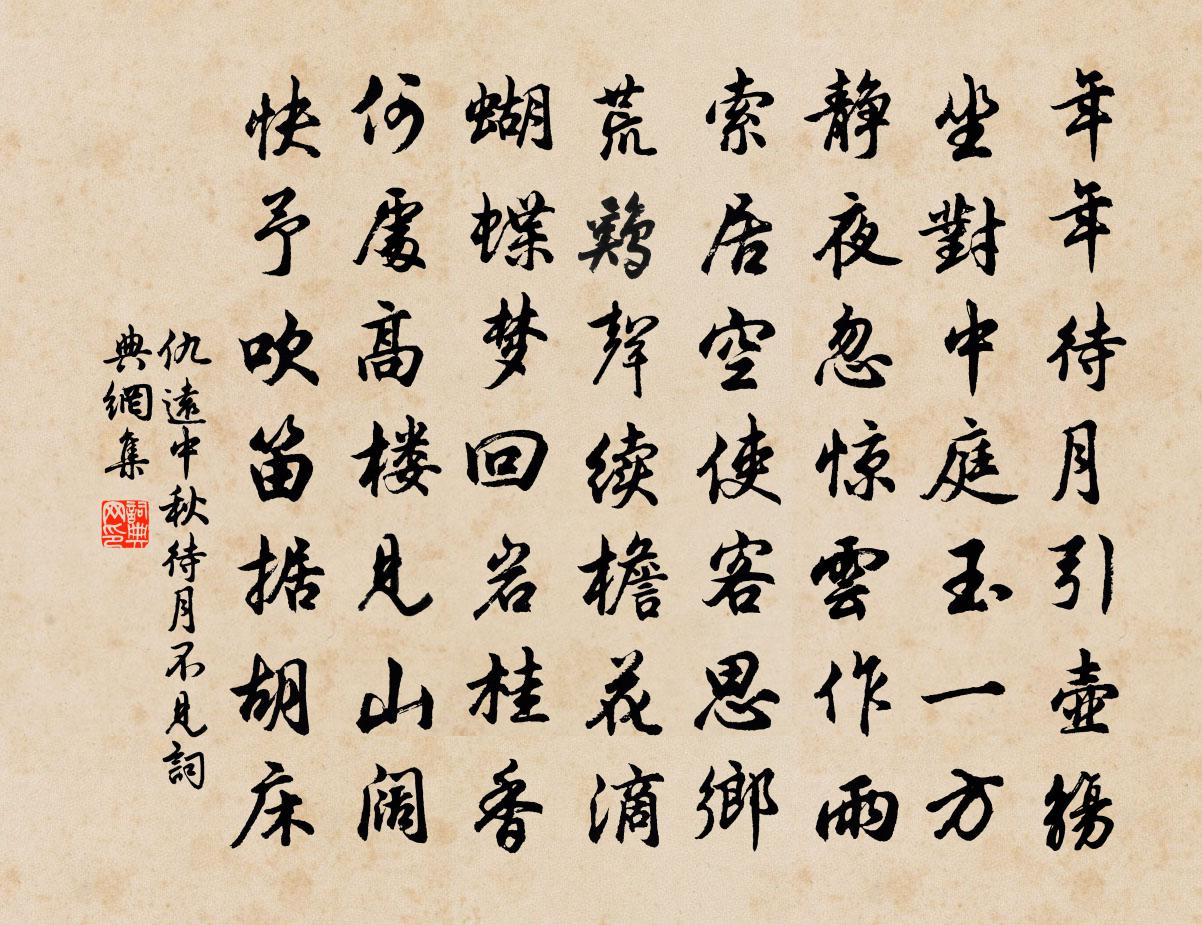 年年待月引壺觴
坐對中庭玉一方
静夜忽惊雲作雨
索居空使客思鄉
荒鷄聲续檐花滴
蝴蝶梦回岩桂香
何處高楼見山阔
快予吹笛据胡床
仇遠中秋待月不見詞
典網集
詞典
网印